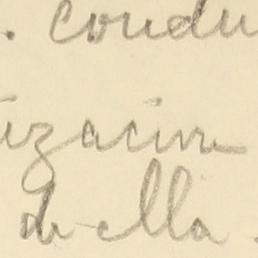 . condu
izacion
de ella.